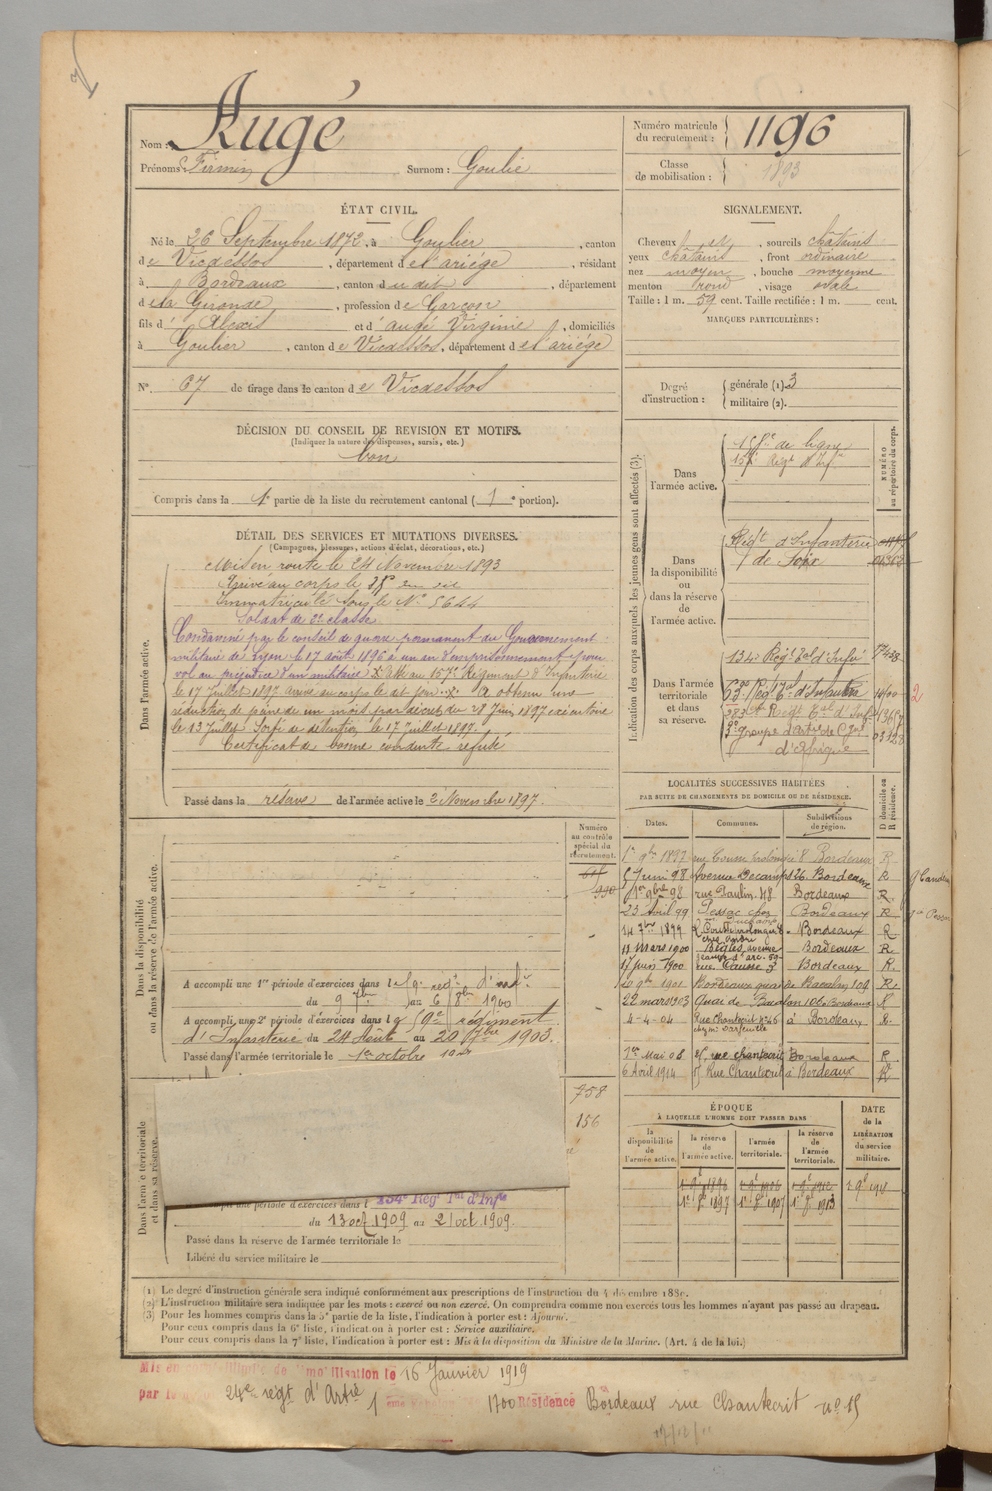 Nom : Augé
Prénoms : Firmin Surnom : Goulié
Numéro matricule du recrutement : 1196
Classe de mobilisation : 1893
ÉTAT CIVIL.
Né le 26 Septembre 1872, à Goulier, canton
de Vicdessos, département de l'ariége, résidant
à Bordeaux, canton du dit, département
de la Gironde, profession de Garçon
fils d' Alexis et d' augé Virginie, domiciliés
à Goulier, canton de Vicdessos, département de l'ariége
N° 67 de tirage dans le canton de Vicdessos
SIGNALEMENT.
Cheveux et, sourcils châtains
yeux châtains, front ordinaire
nez moyen, bouche moyenne
menton rond, visage ovale
Taille : 1 m. 59 cent. Taille rectifiée : 1 m. cent.
MARQUES PARTICULIÈRES :
Degré d'instruction : générale (1). 3
militaire (2).
DÉCISION DU CONSEIL DE REVISION ET MOTIFS.
(Indiquer la nature des dispenses, sursis, etc.)
bon
Compris dans la 1e partie de la liste du recrutement cantonal (1e portion).
DÉTAIL DES SERVICES ET MUTATIONS DIVERSES.
(Campagnes, blessures, actions d'éclat, décorations, etc.)
Dans l'armée active.
Mis en route le 24 Novembre 1893
Arrivé au corps le
Immatriculé sous le N° 5644
Soldat de 2e classe
Condamné par le conseil de guerre permanent du Gouvernement
militaire de Lyon le 17 août 1896 à un an d'emprisonnement pour
vol au préjudice d'un militaire au 157e Régiment d'Infanterie
le 17 Juillet 1897 arrivé au corps le dit jour. A obtenu une
réduction de peine de un mois par décision du 28 Juin 1897 exécutoire
le 13 Juillet. Sorti de détention le 17 Juillet 1897.
Certificat de bonne conduite refusé
Passé dans la réserve de l'armée active le 2 Novembre 1897.
Indication des corps auxquels les jeunes gens sont affectés (3).
NUMÉRO au répertoire du corps.
Dans l'armée active.
de ligne
157e Régt d'Infie
Dans la disponibilité ou dans la réserve de l'armée active.
Régt d'Infanterie
de Foix
Dans l'armée territoriale et dans sa réserve.
134e Régt Tal d'Infie
63e Régt Tal d'Infanterie
Régt Tal d'Infie
3e groupe d'Artie de Cgne
d'Afrique
2
LOCALITÉS SUCCESSIVES HABITÉES
PAR SUITE DE CHANGEMENTS DE DOMICILE OU DE RÉSIDENCE.
Dates. Communes. Subdivisions de région. D domicile ou R résidence.
1er 9bre 1897 rue Cousse prolongée 8 Bordeaux R
5 Juin 98 Avenue Decamps 26 Bordeaux R
1er 9bre 98 rue Paulin 48 Bordeaux R
23 Avril 99 Pessac chez Bordeaux R
14 7bre 1899 Bordeaux R
11 Mars 1900 Bègles, avenue Jeanne d'arc 59 Bordeaux R
17 juin 1900 rue Causse 3 Bordeaux R.
9bre 1901 Bordeaux quai de 104 R
22 mars 1903 Quai de Bacalan 106 Bordeaux R
4-4-04 Rue Chantecrit N° 46 à Bordeaux R.
1er Mai 08 rue chantecrit Bordeaux R
6 Avril 1914 15 Rue Chantecrit à Bordeaux R
Dans la disponibilité ou dans la réserve de l'armée active.
Numéro au contrôle spécial du recrutement.
A accompli une 1re période d'exercices dans le régt d'infie
du 9 7bre au 6 8bre 1900
A accompli une 2e période d'exercices dans le régiment
d'Infanterie du 24 Août au 20 7bre 1903.
Passé dans l'armée territoriale le 1er octobre
758
156
Dans l'armée territoriale et dans sa réserve.
période d'exercices dans le 134e Régt Tal d'Infie
du 13 oct 1909 au 21 oct 1909.
Passé dans la réserve de l'armée territoriale le
Libéré du service militaire le
ÉPOQUE
À LAQUELLE L'HOMME DOIT PASSER DANS
la disponibilité de l'armée active. la réserve de l'armée active. l'armée territoriale. la réserve de l'armée territoriale.
DATE de la LIBÉRATION du service militaire.
1er 9e 1896
1er 8e 1897 1er 8e 1907 1er 8e 1913
(1) Le degré d'instruction générale sera indiqué conformément aux prescriptions de l'instruction du 4 décembre 1889.
(2) L'instruction militaire sera indiquée par les mots : exercé ou non exercé. On comprendra comme non exercés tous les hommes n'ayant pas passé au drapeau.
(3) Pour les hommes compris dans la 5e partie de la liste, l'indication à porter est : Ajourné.
Pour ceux compris dans la 6e liste, l'indication à porter est : Service auxiliaire.
Pour ceux compris dans la 7e liste, l'indication à porter est : Mis à la disposition du Ministre de la Marine. (Art. 4 de la loi.)
Mis en de le 16 Janvier 1919
par le 24e régt d'Artie 1 Résidence Bordeaux rue Chantecrit n° 15